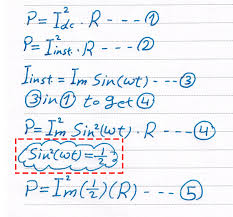 P=I²dc · R --- ①
P=I²inst. · R --- ②
Iinst.=Im Sin(wt) --- ③
③ in ① to get ④
P=I²m Sin²(wt) · R --- ④
Sin²(wt)=1/2
P=I²m(1/2)(R) --- ⑤